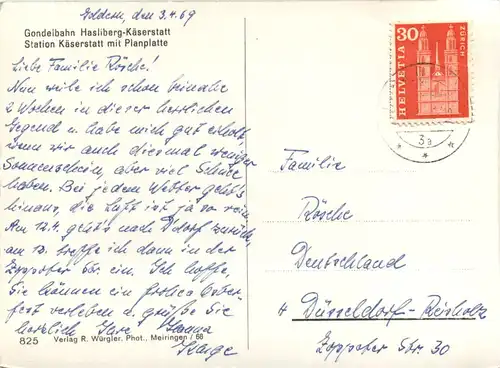 Goldern, den 3.4.69
Gondelbahn Hasliberg-Käserstatt
Station Käserstatt mit Planplatte
Liebe Familie Rösche!
Nun weile ich schon beinahe
2 Wochen in dieser herrlichen
Gegend u. habe mich gut erholt,
wenn wir auch diesmal weniger
Sonnenschein, aber viel Schnee
haben. Bei jedem Wetter geht's
hinaus, die Luft ist ja so rein.
Am 12.4. geht's nach D'dorf zurück,
am 13. treffe ich dann in der
Zoppoter Str. ein. Ich hoffe,
Sie können ein frohes Oster-
fest verleben u. grüße Sie
herzlich Ihre Hanna
825 Verlag R. Würgler, Phot., Meiringen / 66
30
HELVETIA
ZÜRICH
3a
Familie
Rösche
Deutschland
4 Düsseldorf-Reisholz
Zoppoter Str. 30